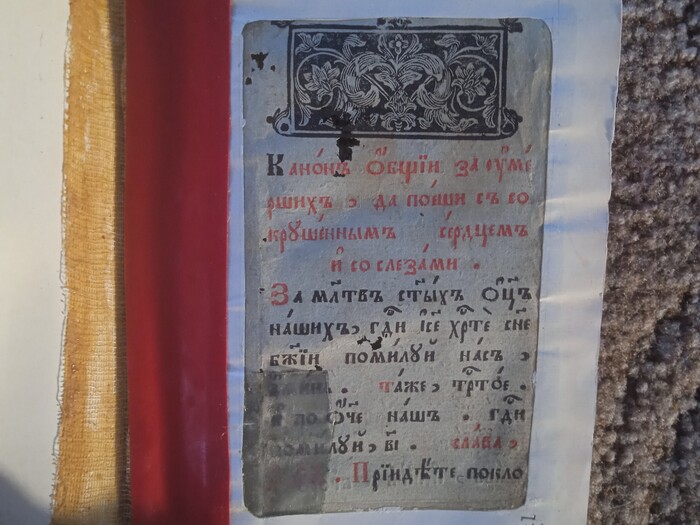 Кано́нъ ѻ҆́бщїи за ѹ҆ме́
ршихъ, да пое́ши съ со
крꙋше́ннымъ се́рдцемъ
и҆ со слеза́ми .
За мл҃твъ ст҃ы́хъ ѻ҆ц҃ъ
на́шихъ, гдⷭ҇и і҆с҃е хрⷭ҇те́ сн҃е
бж҃їи поми́лꙋй на́съ,
а҆ми́нь . та́же, трⷭ҇то́е .
и҆ по ѻ҆́ч҃е на́шъ . гдⷭ҇и
поми́лꙋй, в҃і . сла́ва,
Прїиндѣ́те покло